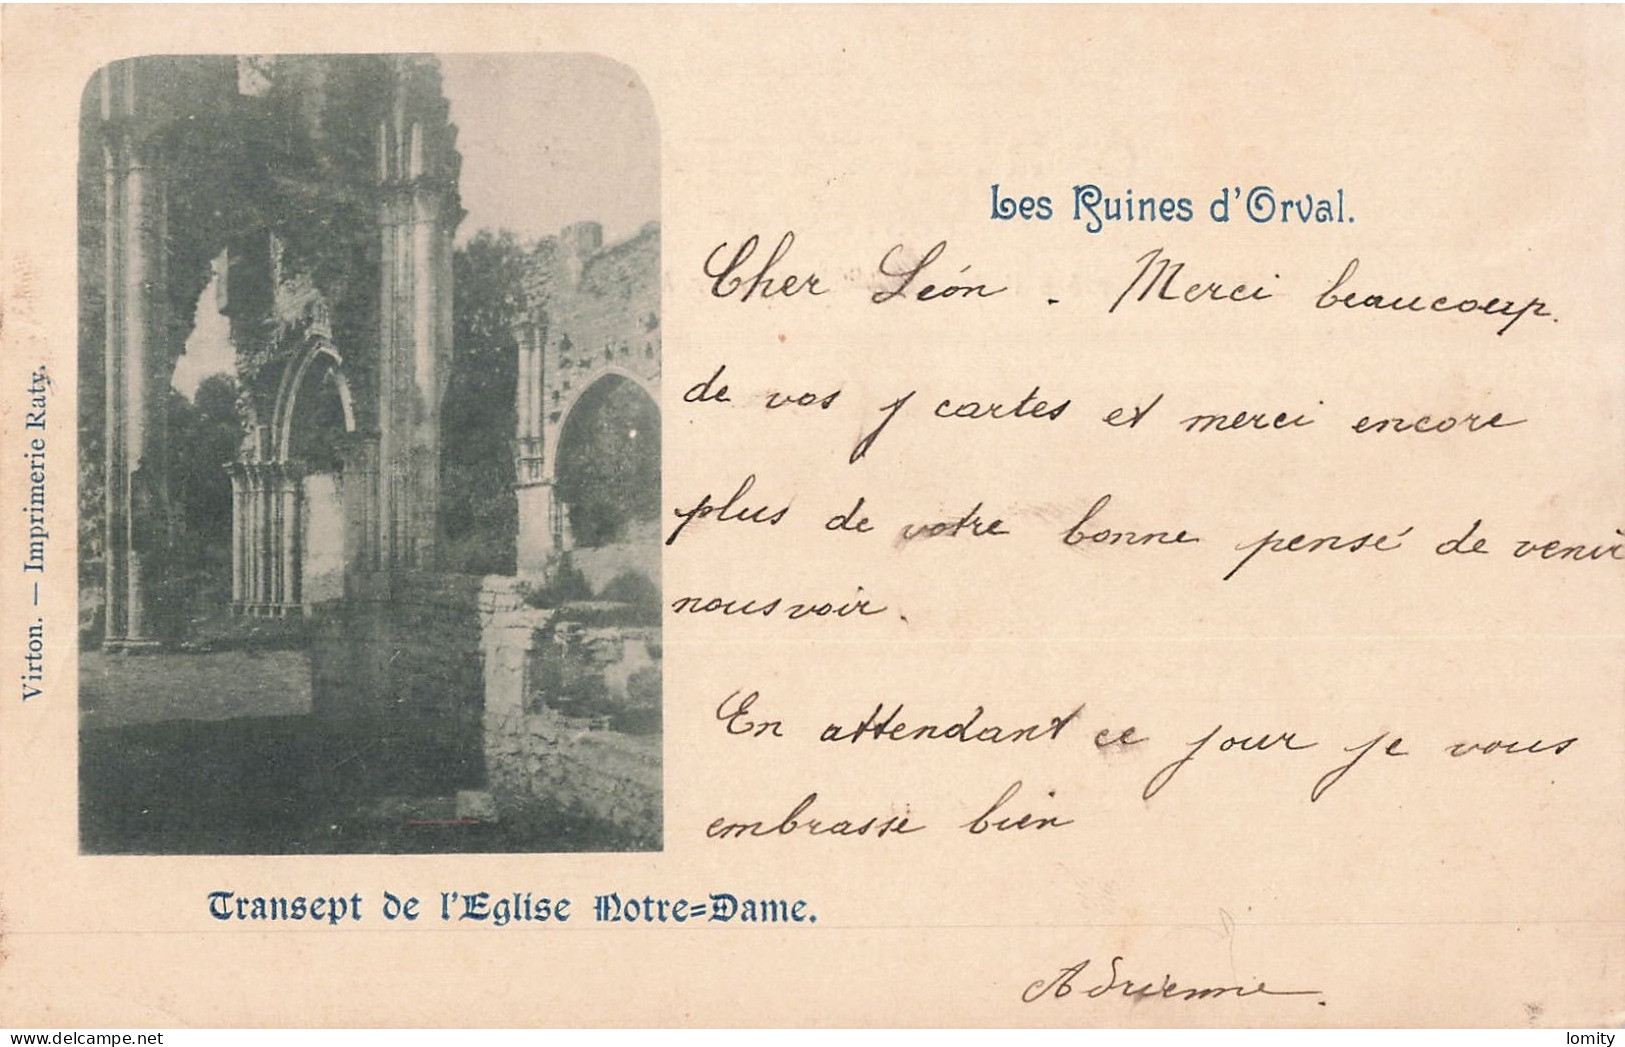 Les Ruines d'Orval.
Cher Léon. Merci beaucoup.
de vos cartes et merci encore
plus de votre bonne pensé de venir
nous voir.
En attendant ce jour je vous
embrasse bien
Adrienne.
Transept de l'Eglise Notre=Dame.
Virton. — Imprimerie Raty.
www.delcampe.net
lomity